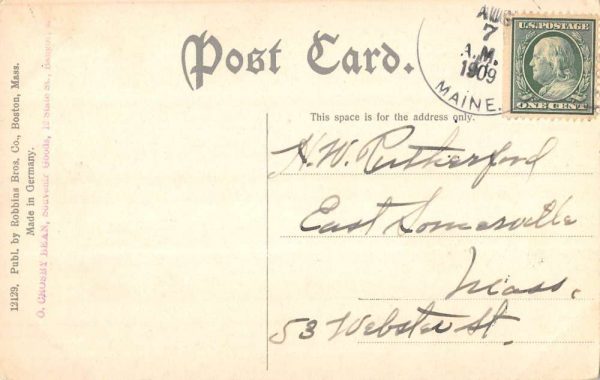 Post Card.
AUG
7
A.M.
1909
MAINE.
U.S. POSTAGE
ONE CENT
This space is for the address only.
H.W. Rutherford
East Somerville
Mass.
53 Webster St.
12129. Publ. by Robbins Bros. Co., Boston, Mass.
Made in Germany.
O. CROSBY BEAN, Souvenir Goods, 12 State St., Bangor,